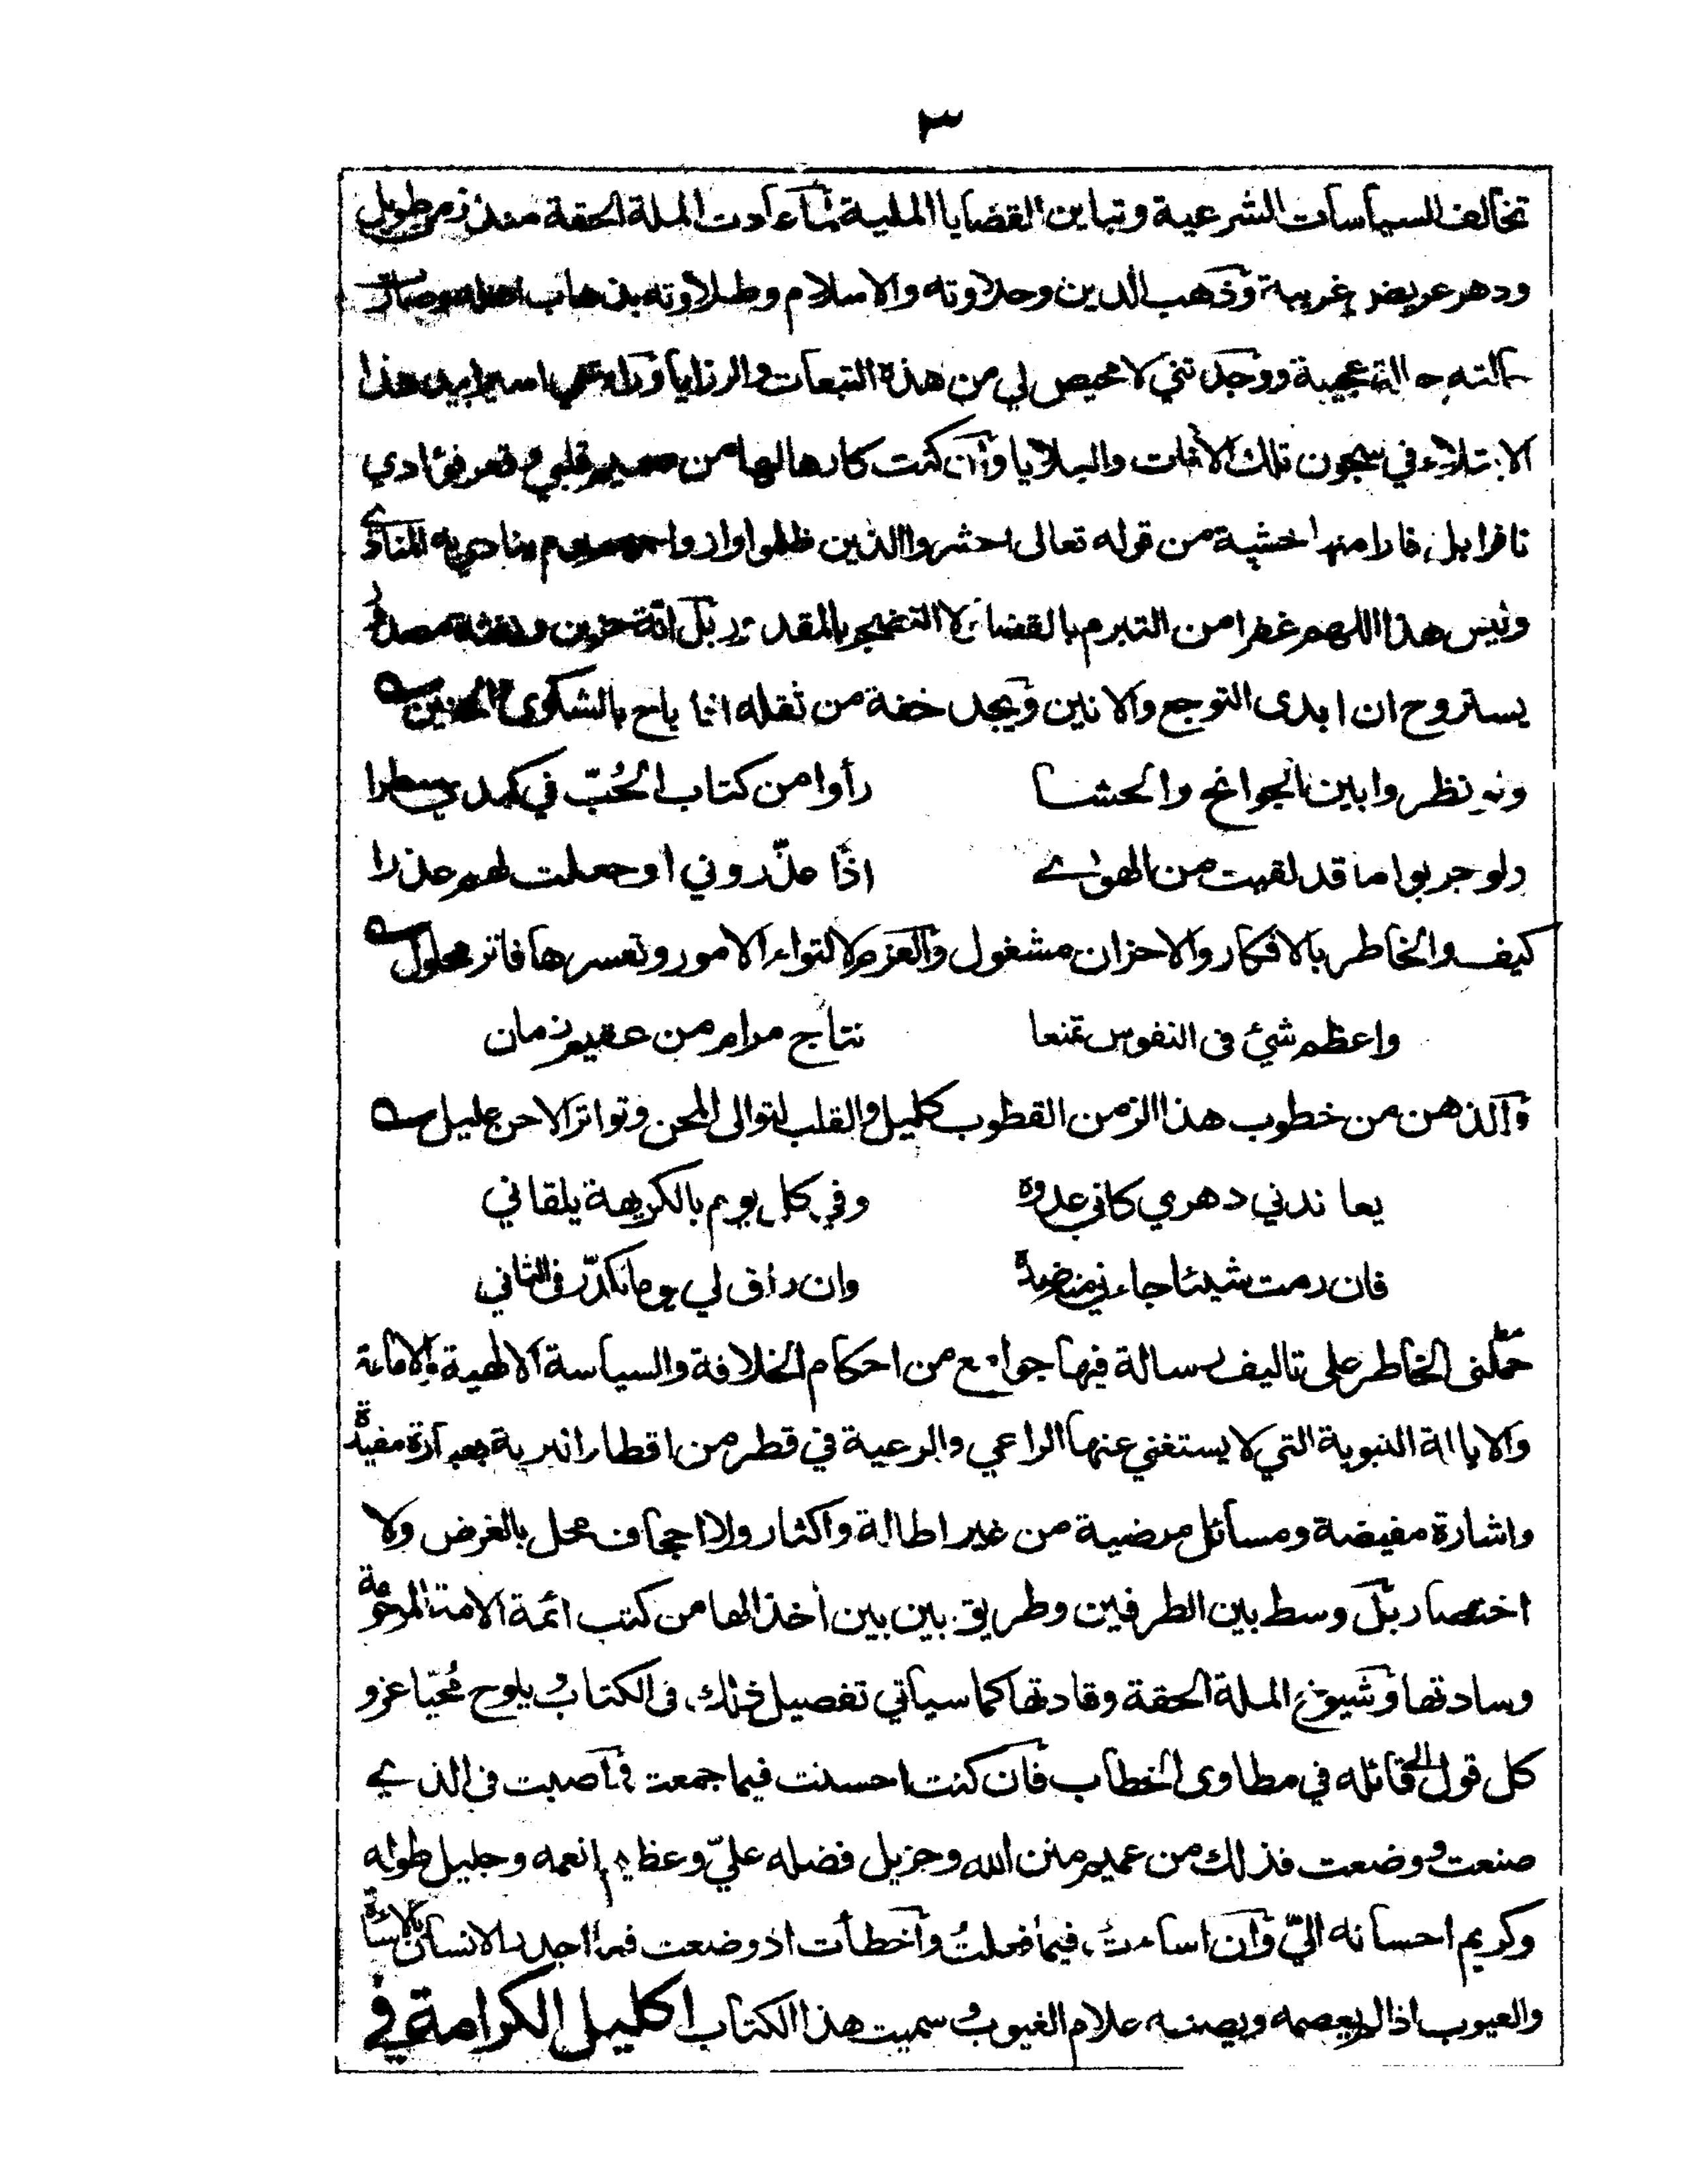 ٣
تخالف السياسات الشرعية وتباين القضايا الملية عادت الملة الحقة منذ زمن طويل
ودهر عريض غريبة وذهب الدين وحلاوته والاسلام وطلاوته بذهاب اهله وصارت
حالته حالة عجيبة ووجدتني لا محيص لي من هذه التبعات والرزايا وراء عمي اسيرا بيد هذا
الابتلاء في سجون تلك الآفات والبلايا وان كنت كارها لها من صميم قلبي وقعر فؤادي
نافرا بل فارا منها خشية من قوله تعالى احشروا الذين ظلموا وازواجهم يوم ينادي به المنادي
وليس هذا اللهم غفرا من التبرم بالقضاء ولا التضجر بالمقدور بل انة حزين ونفثة مصدور
يستروح ان ابدى التوجع والانين ويجد خفة من ثقله اذا باح بالشكوى والحنين
ولو نظروا بين الجوانح والحشا رأوا من كتاب الحُبّ في كبدي سطرا
ولو جربوا ما قد لقيت من الهوى اذًا عذّروني او جعلت لهم عذرا
كيف والخاطر بالافكار والاحزان مشغول والعزم لالتواء الامور وتعسرها فاتر محلول
واعظم شيئ فى النفوس تمنعا نتاج مرام من عقيم زمان
والذهن من خطوب هذا الزمن القطوب كليل والقلب لتوالى المحن وتواتر الاحن عليل
يعاندني دهري كاني عدوه وفي كل يوم بالكريهة يلقاني
فان رمت شيئا جاءني منه ضده وان راق لي يوما تكدّر فى الثاني
حملنى الخاطر على تاليف رسالة فيها جوامع من احكام الخلافة والسياسة الالهية والامامة
والايالة النبوية التي لا يستغني عنها الراعي والرعية في قطر من اقطار البرية بعبارة مفيدة
واشارة مفيضة ومسائل مرضية من غير اطالة واكثار ولا اجحاف مخل بالغرض ولا
اختصار بل وسط بين الطرفين وطريق بين بين أخذا لها من كتب ائمة الامة المرحومة
وسادتها وشيوخ الملة الحقة وقادتها كما سياتي تفصيل ذلك فى الكتاب ويلوح مُحيّا عزو
كل قول الى قائله في مطاوى الخطاب فان كنت احسنت فيما جمعت واصبت فى الذي
صنعت ووضعت فذلك من عميم منن الله وجزيل فضله عليّ وعظيم انعمه وجليل طوله
وكريم احسانه اليّ وان اسأت فيما فعلتُ واخطأت اذ وضعت فما اجدر الانسان بالاساءة
والعيوب اذا لم يعصمه ويصنه علام الغيوب وسميت هذا الكتاب اكليل الكرامة في